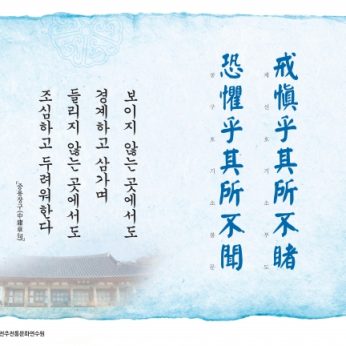 戒愼乎其所不睹
계신호기소부도
恐懼乎其所不聞
공구호기소불문
보이지 않는 곳에서도
경계하고 삼가며
들리지 않는 곳에서도
조심하고 두려워한다
「중용장구(中庸章句)」
전주전통문화연수원